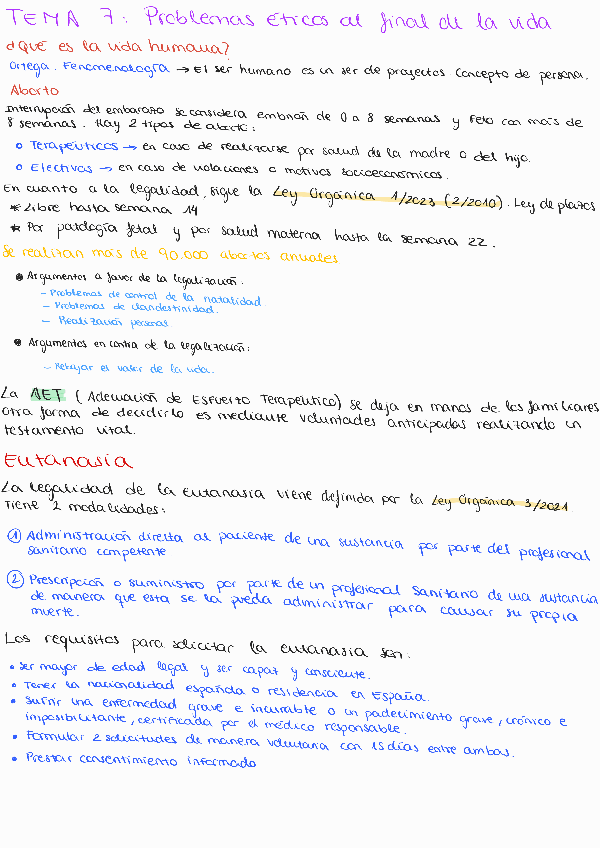 TEMA 7: Problemas éticos al final de la vida
¿Qué es la vida humana?
Ortega. Fenomenología → El ser humano es un ser de proyectos. Concepto de persona.
Aborto
Interrupción del embarazo se considera embrión de 0 a 8 semanas y feto con más de
8 semanas. Hay 2 tipos de aborto:
Terapéuticos → en caso de realizarse por salud de la madre o del hijo.
Electivos → en caso de violaciones o motivos socioeconómicos.
En cuanto a la legalidad, sigue la Ley Orgánica 1/2023 (2/2010). Ley de plazos
* Libre hasta semana 14
* Por patología fetal y por salud materna hasta la semana 22.
Se realizan más de 90.000 abortos anuales
Argumentos a favor de la legalización.
- Problemas de control de la natalidad
- Problemas de clandestinidad.
- Realización personal
Argumentos en contra de la legalización:
- Rebajar el valor de la vida.
La AET (Adecuación de Esfuerzo Terapéutico) se deja en manos de los familiares
otra forma de decidirlo es mediante voluntades anticipadas realizando un
testamento vital.
Eutanasia
La legalidad de la eutanasia viene definida por la Ley Orgánica 3/2021
Tiene 2 modalidades:
① Administración directa al paciente de una sustancia por parte del profesional
sanitario competente
② Prescripción o suministro por parte de un profesional sanitario de una sustancia
de manera que esta se la pueda administrar para causar su propia
muerte.
Los requisitos para solicitar la eutanasia son:
• Ser mayor de edad legal y ser capaz y consciente.
• Tener la nacionalidad española o residencia en España.
• Sufrir una enfermedad grave e incurable o un padecimiento grave, crónico e
imposibilitante, certificada por el médico responsable.
• Formular 2 solicitudes de manera voluntaria con 15 días entre ambas.
• Prestar consentimiento informado